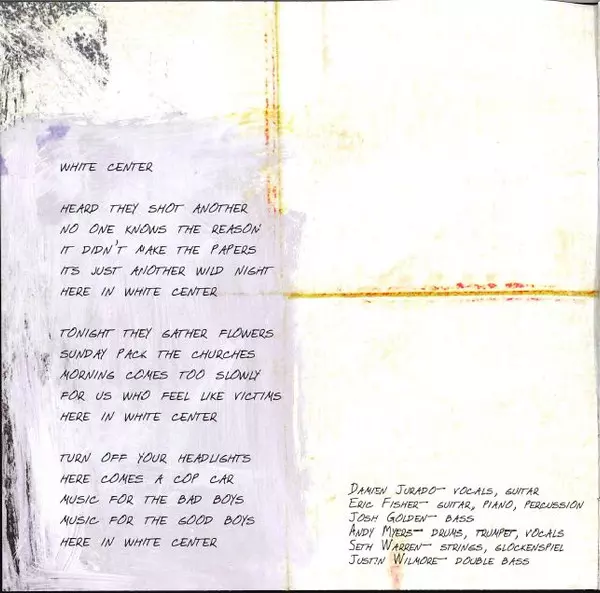 WHITE CENTER
HEARD THEY SHOT ANOTHER
NO ONE KNOWS THE REASON
IT DIDN'T MAKE THE PAPERS
ITS JUST ANOTHER WILD NIGHT
HERE IN WHITE CENTER
TONIGHT THEY GATHER FLOWERS
SUNDAY PACK THE CHURCHES
MORNING COMES TOO SLOWLY
FOR US WHO FEEL LIKE VICTIMS
HERE IN WHITE CENTER
TURN OFF YOUR HEADLIGHTS
HERE COMES A COP CAR
MUSIC FOR THE BAD BOYS
MUSIC FOR THE GOOD BOYS
HERE IN WHITE CENTER
DAMIEN JURADO— VOCALS, GUITAR
ERIC FISHER— GUITAR, PIANO, PERCUSSION
JOSH GOLDEN— BASS
ANDY MYERS— DRUMS, TRUMPET, VOCALS
SETH WARREN— STRINGS, GLOCKENSPIEL
JUSTIN WILMORE— DOUBLE BASS